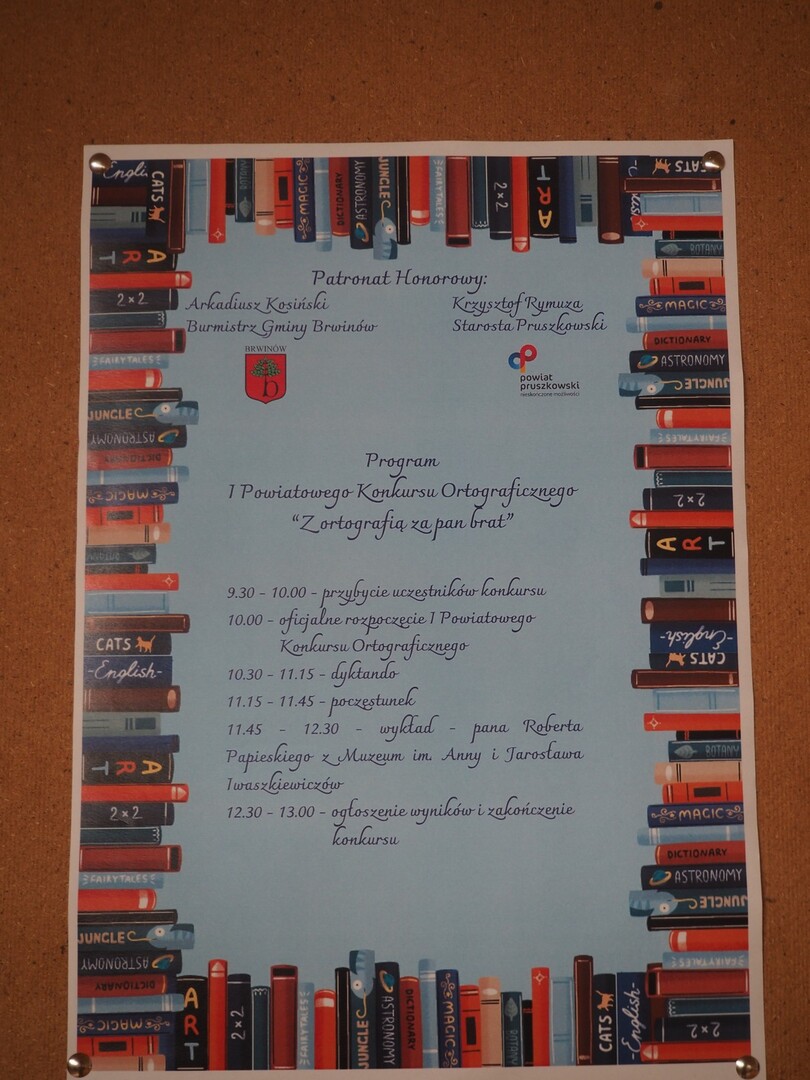 Patronat Honorowy:
Arkadiusz Kosiński
Burmistrz Gminy Brwinów
Krzysztof Rymuza
Starosta Pruszkowski
BRWINÓW
b
powiat
pruszkowski
nieskończone możliwości
Program
I Powiatowego Konkursu Ortograficznego
“Z ortografią za pan brat”
9.30 - 10.00 - przybycie uczestników konkursu
10.00 - oficjalne rozpoczęcie I Powiatowego
Konkursu Ortograficznego
10.30 - 11.15 - dyktando
11.15 - 11.45 - poczęstunek
11.45 - 12.30 - wykład - pana Roberta
Papieskiego z Muzeum im. Anny i Jarosława
Iwaszkiewiczów
12.30 - 13.00 - ogłoszenie wyników i zakończenie
konkursu
CATS
MAGIC
DICTIONARY
ASTRONOMY
JUNGLE
FAIRYTALES
2×2
ART
CATS
BOTANY
MAGIC
DICTIONARY
ASTRONOMY
JUNGLE
FAIRYTALES
2×2
ART
-English-
CATS
BOTANY
MAGIC
DICTIONARY
ASTRONOMY
JUNGLE
FAIRYTALES
2×2
ART
2×2
FAIRYTALES
JUNGLE
ASTRONOMY
DICTIONARY
MAGIC
CATS
-English-
ART
2×2
FAIRYTALES
JUNGLE
ASTRONOMY
DICTIONARY
MAGIC
ART
2×2
FAIRYTALES
JUNGLE
ASTRONOMY
DICTIONARY
MAGIC
BOTANY
CATS
-English-